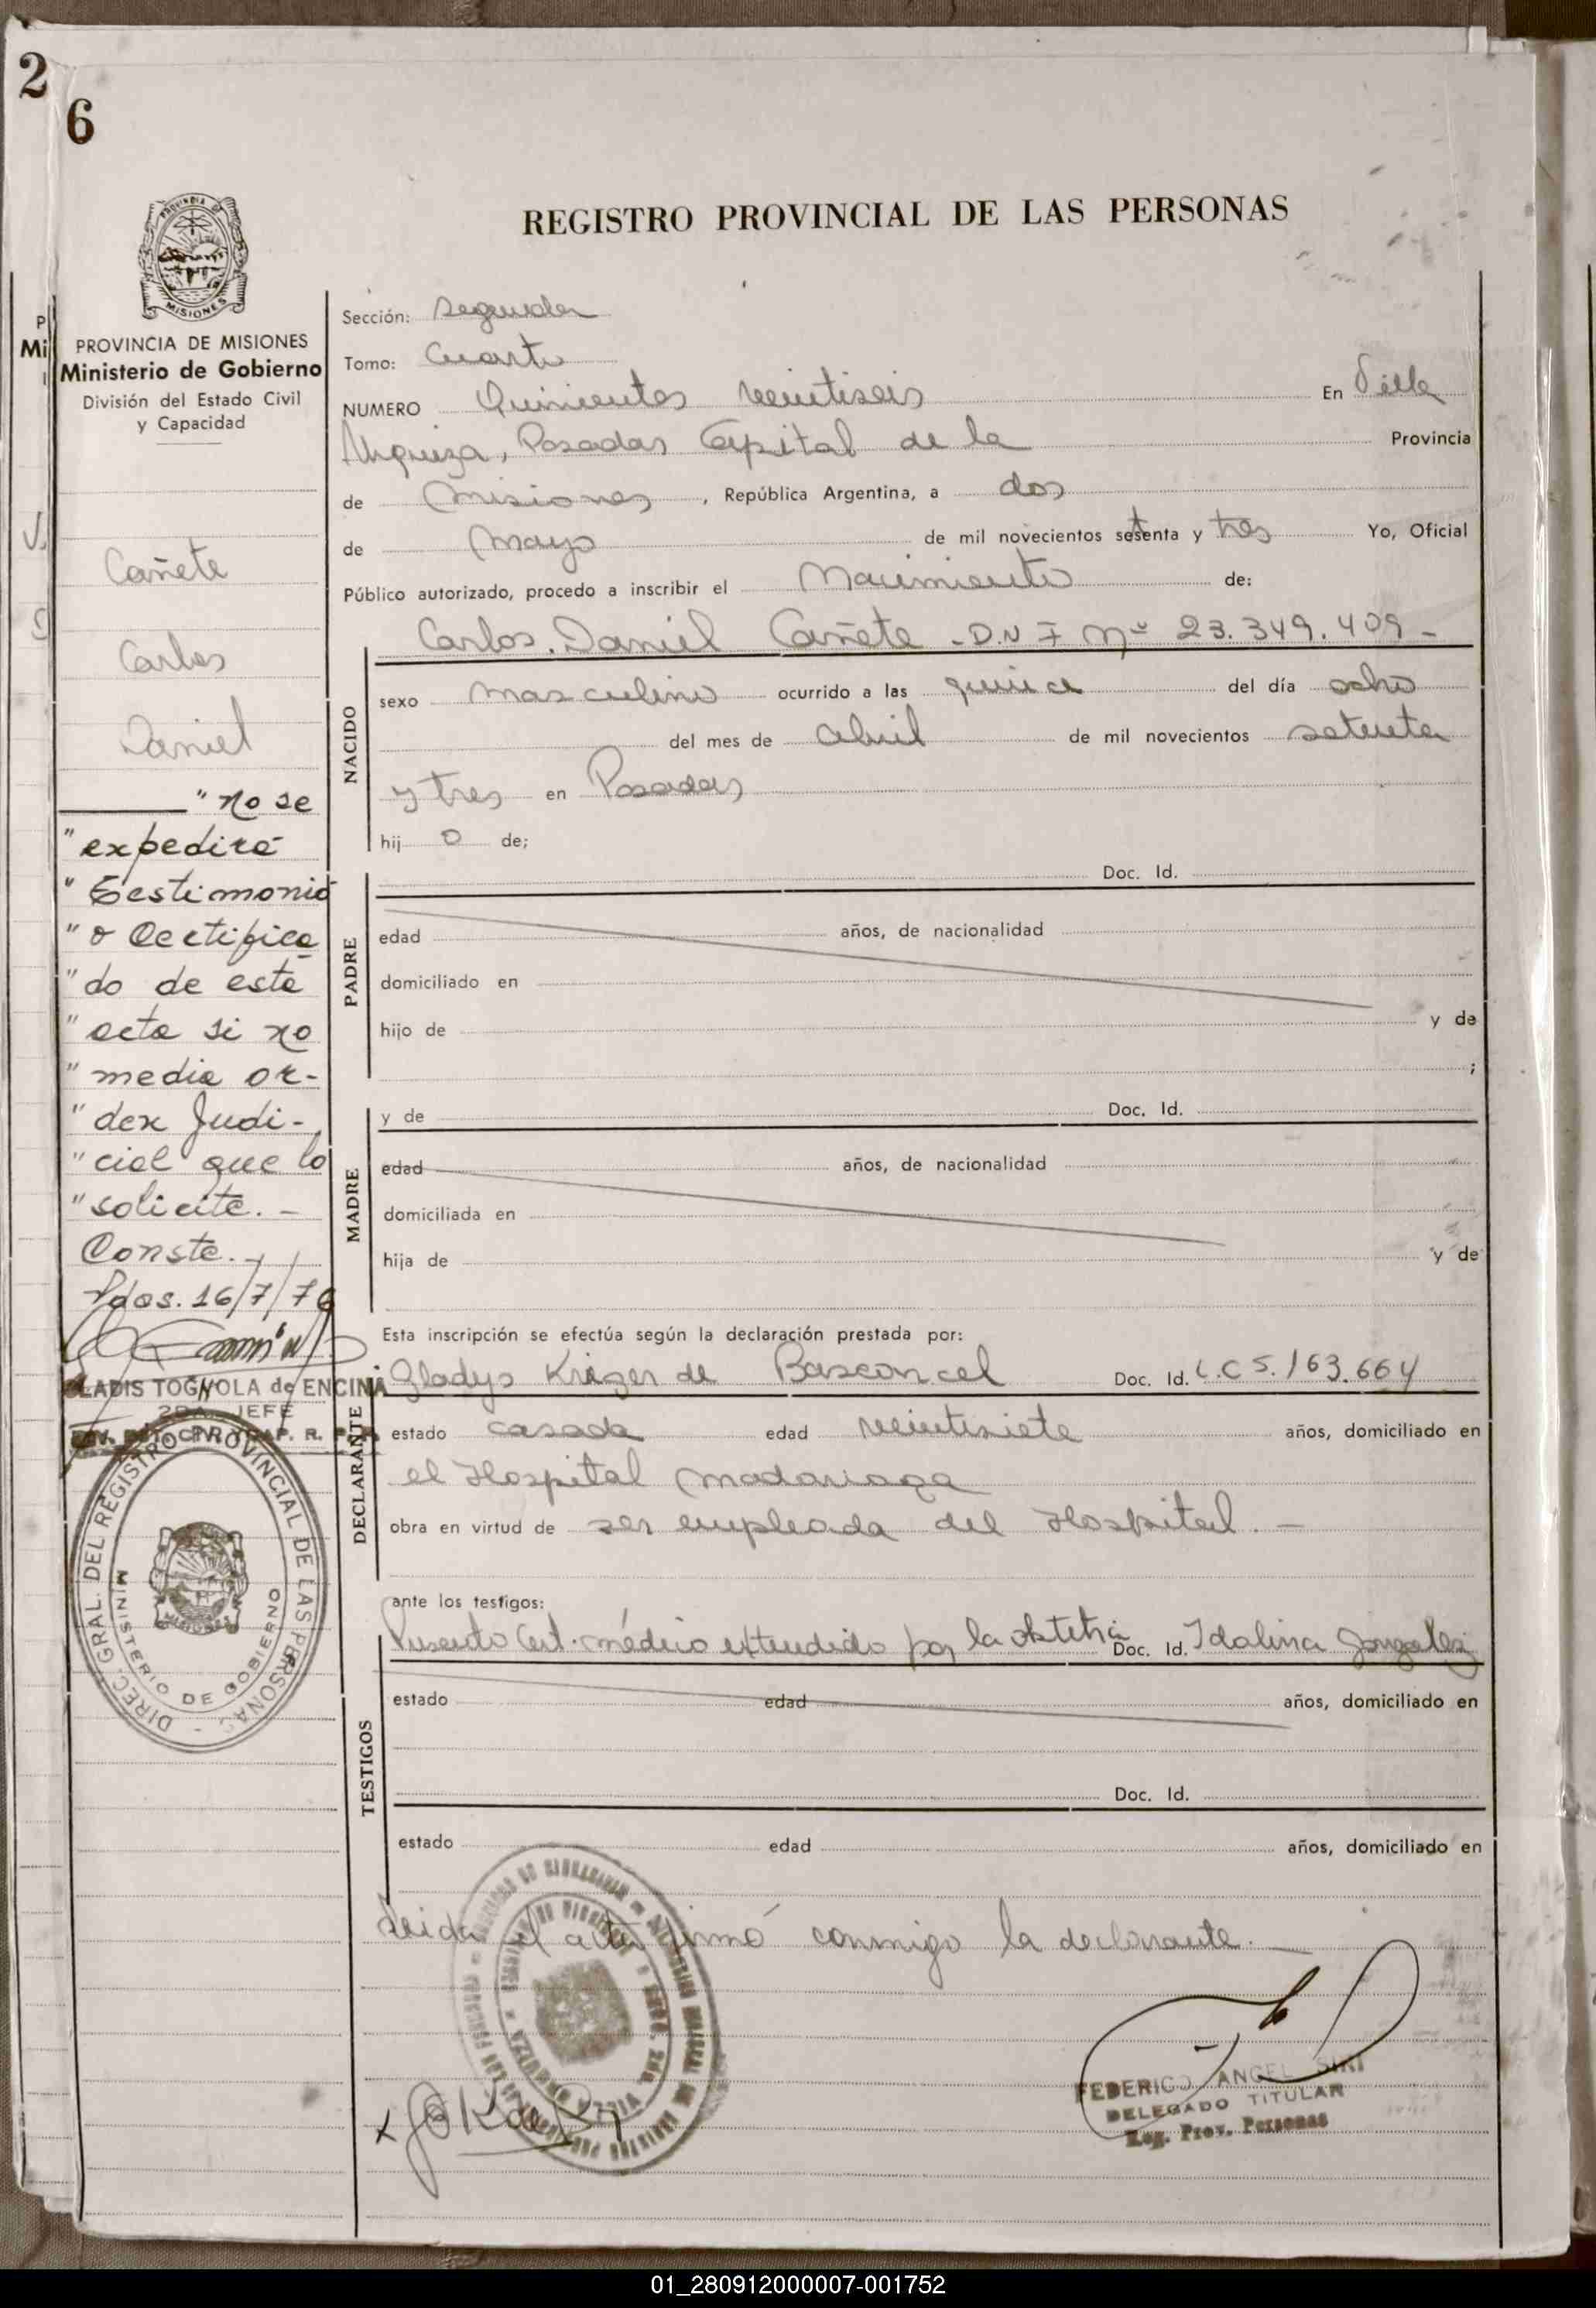 2
6
REGISTRO PROVINCIAL DE LAS PERSONAS
MISIONES
PROVINCIA DE MISIONES
Ministerio de Gobierno
División del Estado Civil
y Capacidad
Cañete
Carlos
Daniel
" no se
" expedirá
" Testimonio
" o Certifica
" do de esta
" acta si no
" media or-
" den Judi-
" cial que lo
" solicite. -
Conste. -
Pdas. 16/7/76
GLADIS TOGNOLA de ENCINA
2DA. JEFE
DIREC. GRAL. DEL REGISTRO PROVINCIAL DE LAS PERSONAS -
MINISTERIO DE GOBIERNO
MISIONES
Sección: Segunda
Tomo: Cuarto
NUMERO Quinientos veintiseis En Villa
Urquiza, Posadas Capital de la Provincia
de Misiones, República Argentina, a dos
de Mayo de mil novecientos setenta y tres Yo, Oficial
Público autorizado, procedo a inscribir el Nacimiento de:
Carlos Daniel Cañete - D.N.I Nº 23.349.409 -
NACIDO
sexo masculino ocurrido a las quince del día ocho
del mes de abril de mil novecientos setenta
y tres en Posadas
hij o de;
Doc. Id.
PADRE
edad años, de nacionalidad
domiciliado en
hijo de y de
;
MADRE
y de Doc. Id.
edad años, de nacionalidad
domiciliada en
hija de y de
Esta inscripción se efectúa según la declaración prestada por:
DECLARANTE
Gladys Krieger de Basconcel Doc. Id. L.C 5.163.664
estado casada edad veintisiete años, domiciliado en
el Hospital Madariaga
obra en virtud de ser empleada del Hospital. -
ante los testigos:
TESTIGOS
Presento Cert. médico extendido por la obstetra Doc. Id. Idalina Gonzalez
estado edad años, domiciliado en
Doc. Id.
estado edad años, domiciliado en
Leida el acta firmó conmigo la declarante. -
FEDERICO ANGEL SIRI
DELEGADO TITULAR
Reg. Prov. Personas
01_280912000007-001752